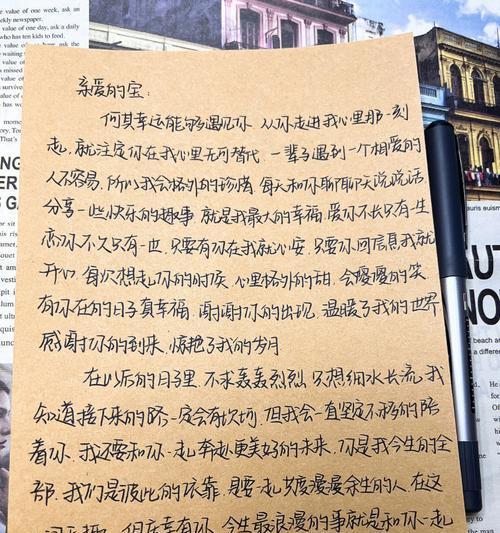 the value of one week, ask an
weekly newspaper.
value of one day, ask a daily
who has ten kids to feed.
亲爱的宝:
何其幸运能够遇见你 从你走进我心里那一刻
起,就注定你在我心里无可替代,一辈子遇到一个相爱的
人不容易,所以我会格外的珍惜 每天和你聊聊天说说话
分享一些快乐的趣事 就是我最大的幸福,爱你不长只有一生
恋你不久只有一世,只要有你在我就心安,只要你回信息我就
开心,每次想起你的时候,心里格外的甜,会傻傻的笑
有你在的日子真幸福,谢谢你的出现,温暖了我的世界
感谢你的到来,惊艳了我的岁月
在以后的日子里,不求轰轰烈烈,只想细水长流,我
知道接下来的路一定会有坎坷,但我会一直坚定不移的陪
着你,我还要和你一起奔赴更美好的未来,你是我今生的全
部,我们是彼此的依靠,是要一起共度漫漫余生的人,在这
但庆幸有你,今生最浪漫的事就是和你一起
NO
beach an
a different